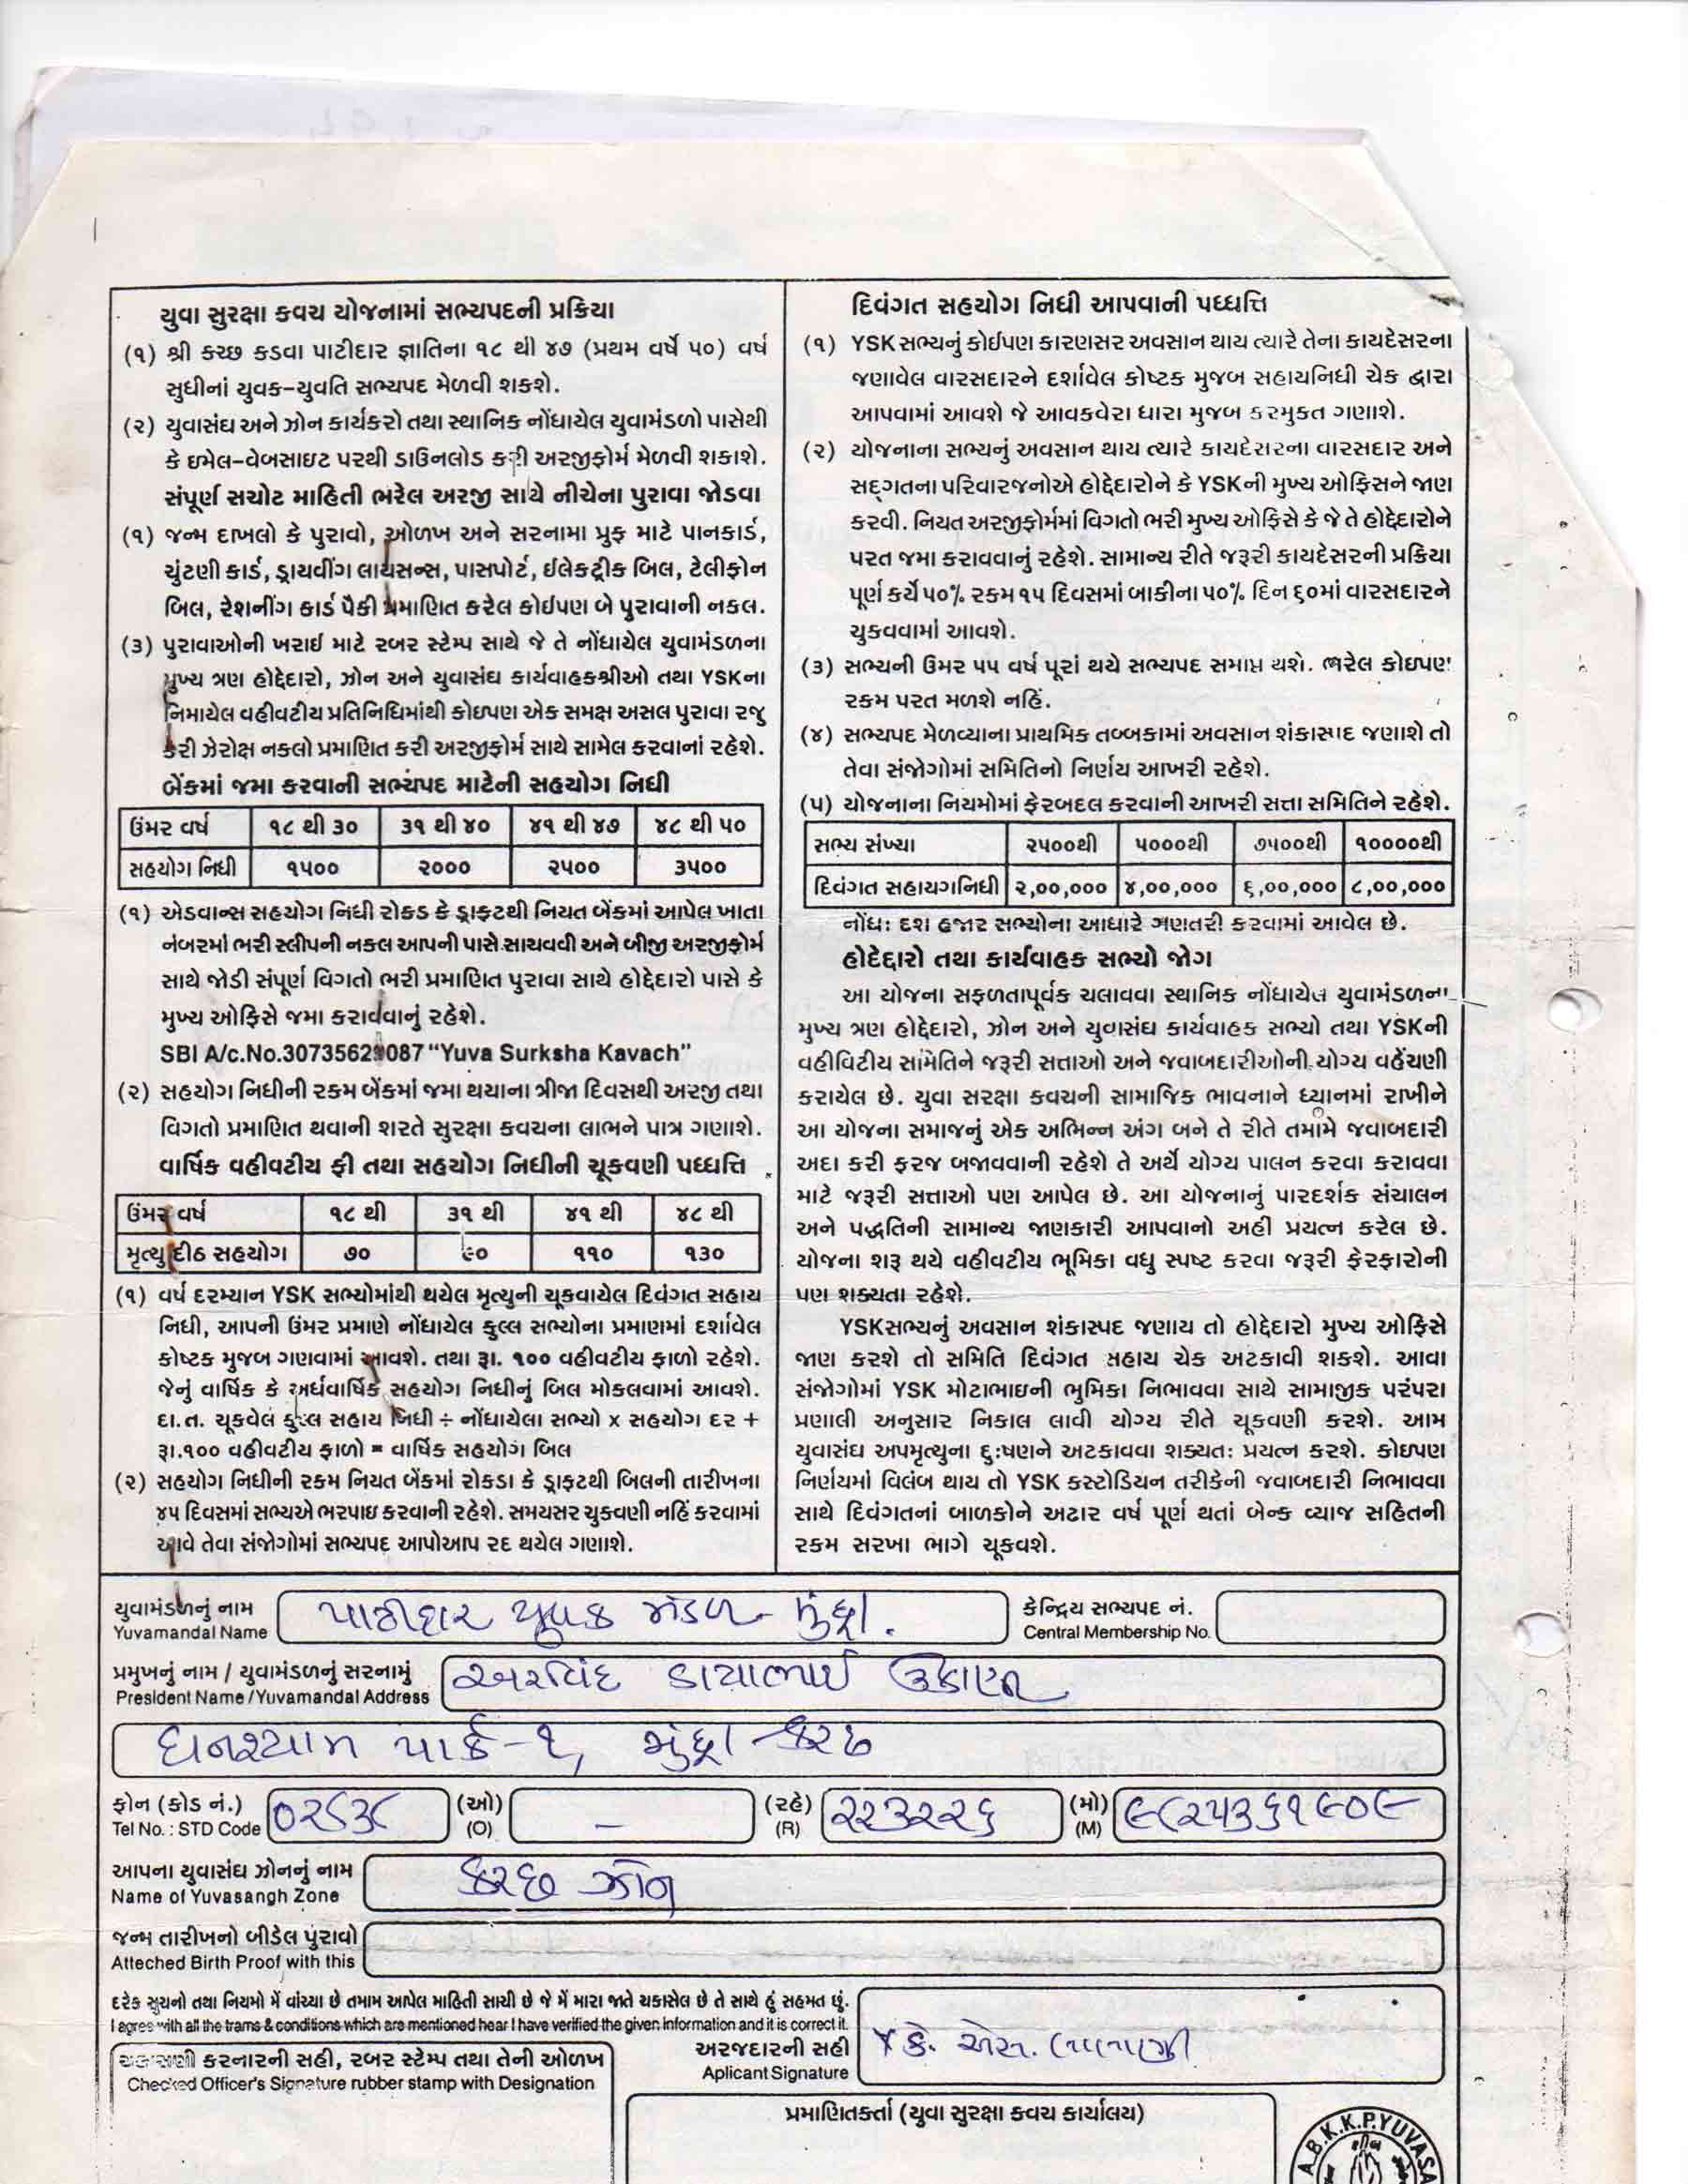 યુવા સુરક્ષા કવચ યોજનામાં સભ્યપદની પ્રક્રિયા
(૧) શ્રી કચ્છ કડવા પાટીદાર જ્ઞાતિના ૧૮ થી ૪૭ (પ્રથમ વર્ષે ૫૦) વર્ષ
સુધીનાં યુવક-યુવતિ સભ્યપદ મેળવી શકશે.
(૨) યુવાસંઘ અને ઝોન કાર્યકરો તથા સ્થાનિક નોંધાયેલ યુવામંડળો પાસેથી
કે ઇમેલ-વેબસાઇટ પરથી ડાઉનલોડ કરી અરજીફોર્મ મેળવી શકાશે.
સંપૂર્ણ સચોટ માહિતી ભરેલ અરજી સાથે નીચેના પુરાવા જોડવા
(૧) જન્મ દાખલો કે પુરાવો, ઓળખ અને સરનામા પ્રુફ માટે પાનકાર્ડ,
ચુંટણી કાર્ડ, ડ્રાયવીંગ લાયસન્સ, પાસપોર્ટ, ઈલેક્ટ્રીક બિલ, ટેલીફોન
બિલ, રેશનીંગ કાર્ડ પૈકી પ્રમાણિત કરેલ કોઇપણ બે પુરાવાની નકલ.
(૩) પુરાવાઓની ખરાઇ માટે રબર સ્ટેમ્પ સાથે જે તે નોંધાયેલ યુવામંડળના
મુખ્ય ત્રણ હોદ્દેદારો, ઝોન અને યુવાસંઘ કાર્યવાહકશ્રીઓ તથા YSKના
નિમાયેલ વહીવટીય પ્રતિનિધિમાંથી કોઇપણ એક સમક્ષ અસલ પુરાવા રજુ
કરી ઝેરોક્ષ નકલો પ્રમાણિત કરી અરજીફોર્મ સાથે સામેલ કરવાનાં રહેશે.
બેંકમાં જમા કરવાની સભ્યંપદ માટેની સહયોગ નિધી
ઉંમર વર્ષ ૧૮ થી ૩૦ ૩૧ થી ૪૦ ૪૧ થી ૪૭ ૪૮ થી ૫૦
સહયોગ નિધી ૧૫૦૦ ૨૦૦૦ ૨૫૦૦ ૩૫૦૦
(૧) એડવાન્સ સહયોગ નિધી રોકડ કે ડ્રાફ્ટથી નિયત બેંકમાં આપેલ ખાતા
નંબરમાં ભરી સ્લીપની નકલ આપની પાસે સાચવવી અને બીજી અરજીફોર્મ
સાથે જોડી સંપૂર્ણ વિગતો ભરી પ્રમાણિત પુરાવા સાથે હોદ્દેદારો પાસે કે
મુખ્ય ઓફિસે જમા કરાવવાનું રહેશે.
SBI A/c.No. "Yuva Surksha Kavach"
(૨) સહયોગ નિધીની રકમ બેંકમાં જમા થયાના ત્રીજા દિવસથી અરજી તથા
વિગતો પ્રમાણિત થવાની શરતે સુરક્ષા કવચના લાભને પાત્ર ગણાશે.
વાર્ષિક વહીવટીય ફી તથા સહયોગ નિધીની ચૂકવણી પધ્ધત્તિ
ઉંમર વર્ષ ૧૮ થી ૩૧ થી ૪૧ થી ૪૮ થી
મૃત્યુ દીઠ સહયોગ ૭૦ ૯૦ ૧૧૦ ૧૩૦
(૧) વર્ષ દરમ્યાન YSK સભ્યોમાંથી થયેલ મૃત્યુની ચૂકવાયેલ દિવંગત સહાય
નિધી, આપની ઉંમર પ્રમાણે નોંધાયેલ કુલ્લ સભ્યોના પ્રમાણમાં દર્શાવેલ
કોષ્ટક મુજબ ગણવામાં આવશે. તથા રૂા. ૧૦૦ વહીવટીય ફાળો રહેશે.
જેનું વાર્ષિક કે અર્ધવાર્ષિક સહયોગ નિધીનું બિલ મોકલવામાં આવશે.
દા.ત. ચૂકવેલ કુલ્લ સહાય નિધી ÷ નોંધાયેલા સભ્યો x સહયોગ દર +
રૂા.૧૦૦ વહીવટીય ફાળો = વાર્ષિક સહયોગ બિલ
(૨) સહયોગ નિધીની રકમ નિયત બેંકમાં રોકડા કે ડ્રાફટથી બિલની તારીખના
૪૫ દિવસમાં સભ્યએ ભરપાઇ કરવાની રહેશે. સમયસર ચુકવણી નહિં કરવામાં
આવે તેવા સંજોગોમાં સભ્યપદ આપોઆપ રદ થયેલ ગણાશે.
દિવંગત સહયોગ નિધી આપવાની પધ્ધત્તિ
(૧) YSK સભ્યનું કોઈપણ કારણસર અવસાન થાય ત્યારે તેના કાયદેસરના
જણાવેલ વારસદારને દર્શાવેલ કોષ્ટક મુજબ સહાયનિધી ચેક દ્વારા
આપવામાં આવશે જે આવકવેરા ધારા મુજબ કરમુક્ત ગણાશે.
(૨) યોજનાના સભ્યનું અવસાન થાય ત્યારે કાયદેસરના વારસદાર અને
સદ્ગતના પરિવારજનોએ હોદ્દેદારોને કે YSKની મુખ્ય ઓફિસને જાણ
કરવી. નિયત અરજીફોર્મમાં વિગતો ભરી મુખ્ય ઓફિસે કે જે તે હોદ્દેદારોને
પરત જમા કરાવવાનું રહેશે. સામાન્ય રીતે જરૂરી કાયદેસરની પ્રક્રિયા
પૂર્ણ કર્યે ૫૦% રકમ ૧૫ દિવસમાં બાકીના ૫૦% દિન ૬૦માં વારસદારને
ચુકવવામાં આવશે.
(૩) સભ્યની ઉંમર ૫૫ વર્ષ પૂરાં થયે સભ્યપદ સમાપ્ત થશે. ભરેલ કોઇપણ
રકમ પરત મળશે નહિં.
(૪) સભ્યપદ મેળવ્યાના પ્રાથમિક તબ્બકામાં અવસાન શંકાસ્પદ જણાશે તો
તેવા સંજોગોમાં સમિતિનો નિર્ણય આખરી રહેશે.
(૫) યોજનાના નિયમોમાં ફેરબદલ કરવાની આખરી સત્તા સમિતિને રહેશે.
સભ્ય સંખ્યા ૨૫૦૦થી ૫૦૦૦થી ૭૫૦૦થી ૧૦૦૦૦થી
દિવંગત સહાયગનિધી ૨,૦૦,૦૦૦ ૪,૦૦,૦૦૦ ૬,૦૦,૦૦૦ ૮,૦૦,૦૦૦
નોંધઃ દશ હજાર સભ્યોના આધારે ગણતરી કરવામાં આવેલ છે.
હોદેદ્દારો તથા કાર્યવાહક સભ્યો જોગ
આ યોજના સફળતાપૂર્વક ચલાવવા સ્થાનિક નોંધાયેલ યુવામંડળના
મુખ્ય ત્રણ હોદ્દેદારો, ઝોન અને યુવાસંઘ કાર્યવાહક સભ્યો તથા YSKની
વહીવિટીય સમિતિને જરૂરી સત્તાઓ અને જવાબદારીઓની યોગ્ય વહેંચણી
કરાયેલ છે. યુવા સરક્ષા કવચની સામાજિક ભાવનાને ધ્યાનમાં રાખીને
આ યોજના સમાજનું એક અભિન્ન અંગ બને તે રીતે તમામે જવાબદારી
અદા કરી ફરજ બજાવવાની રહેશે તે અર્થે યોગ્ય પાલન કરવા કરાવવા
માટે જરૂરી સત્તાઓ પણ આપેલ છે. આ યોજનાનું પારદર્શક સંચાલન
અને પદ્ધતિની સામાન્ય જાણકારી આપવાનો અહી પ્રયત્ન કરેલ છે.
યોજના શરૂ થયે વહીવટીય ભૂમિકા વધુ સ્પષ્ટ કરવા જરૂરી ફેરફારોની
પણ શક્યતા રહેશે.
YSKસભ્યનું અવસાન શંકાસ્પદ જણાય તો હોદ્દેદારો મુખ્ય ઓફિસે
જાણ કરશે તો સમિતિ દિવંગત સહાય ચેક અટકાવી શકશે. આવા
સંજોગોમાં YSK મોટાભાઇની ભુમિકા નિભાવવા સાથે સામાજીક પરંપરા
પ્રણાલી અનુસાર નિકાલ લાવી યોગ્ય રીતે ચૂકવણી કરશે. આમ
યુવાસંઘ અપમૃત્યુના દુઃષણને અટકાવવા શક્યતઃ પ્રયત્ન કરશે. કોઇપણ
નિર્ણયમાં વિલંબ થાય તો YSK કસ્ટોડિયન તરીકેની જવાબદારી નિભાવવા
સાથે દિવંગતનાં બાળકોને અઢાર વર્ષ પૂર્ણ થતાં બેન્ક વ્યાજ સહિતની
રકમ સરખા ભાગે ચૂકવશે.
યુવામંડળનું નામ પાટીદાર યુવક મંડળ- મુંદ્રા. કેન્દ્રિય સભ્યપદ નં.
Yuvamandal Name Central Membership No.
પ્રમુખનું નામ / યુવામંડળનું સરનામું અરવિંદ ડાયાભાઈ ઉકાણી
President Name /Yuvamandal Address
ઘનશ્યામ પાર્ક-૧, મુંદ્રા-કચ્છ
ફોન (કોડ નં.) ૦૨૮૩૮ (ઓ) – (રહે) ૨૨૩૨૨૬ (મો) ૯૮૨૫૩૬૧૯૦૯
Tel No. : STD Code (O) (R) (M)
આપના યુવાસંઘ ઝોનનું નામ કચ્છ ઝોન
Name of Yuvasangh Zone
જન્મ તારીખનો બીડેલ પુરાવો
Atteched Birth Proof with this
દરેક સુચનો તથા નિયમો મેં વાંચ્યા છે તમામ આપેલ માહિતી સાચી છે જે મેં મારા જાતે ચકાસેલ છે તે સાથે હું સહમત છું.
I agree with all the trams & conditions which are mentioned hear I have verified the given information and it is correct it.
અરજદારની સહી X કે. એસ.
Aplicant Signature
ચકાસણી કરનારની સહી, રબર સ્ટેમ્પ તથા તેની ઓળખ
Checked Officer's Signature rubber stamp with Designation
પ્રમાણિતકર્તા (યુવા સુરક્ષા કવચ કાર્યાલય)
A.B.K.K.P.YUVASA